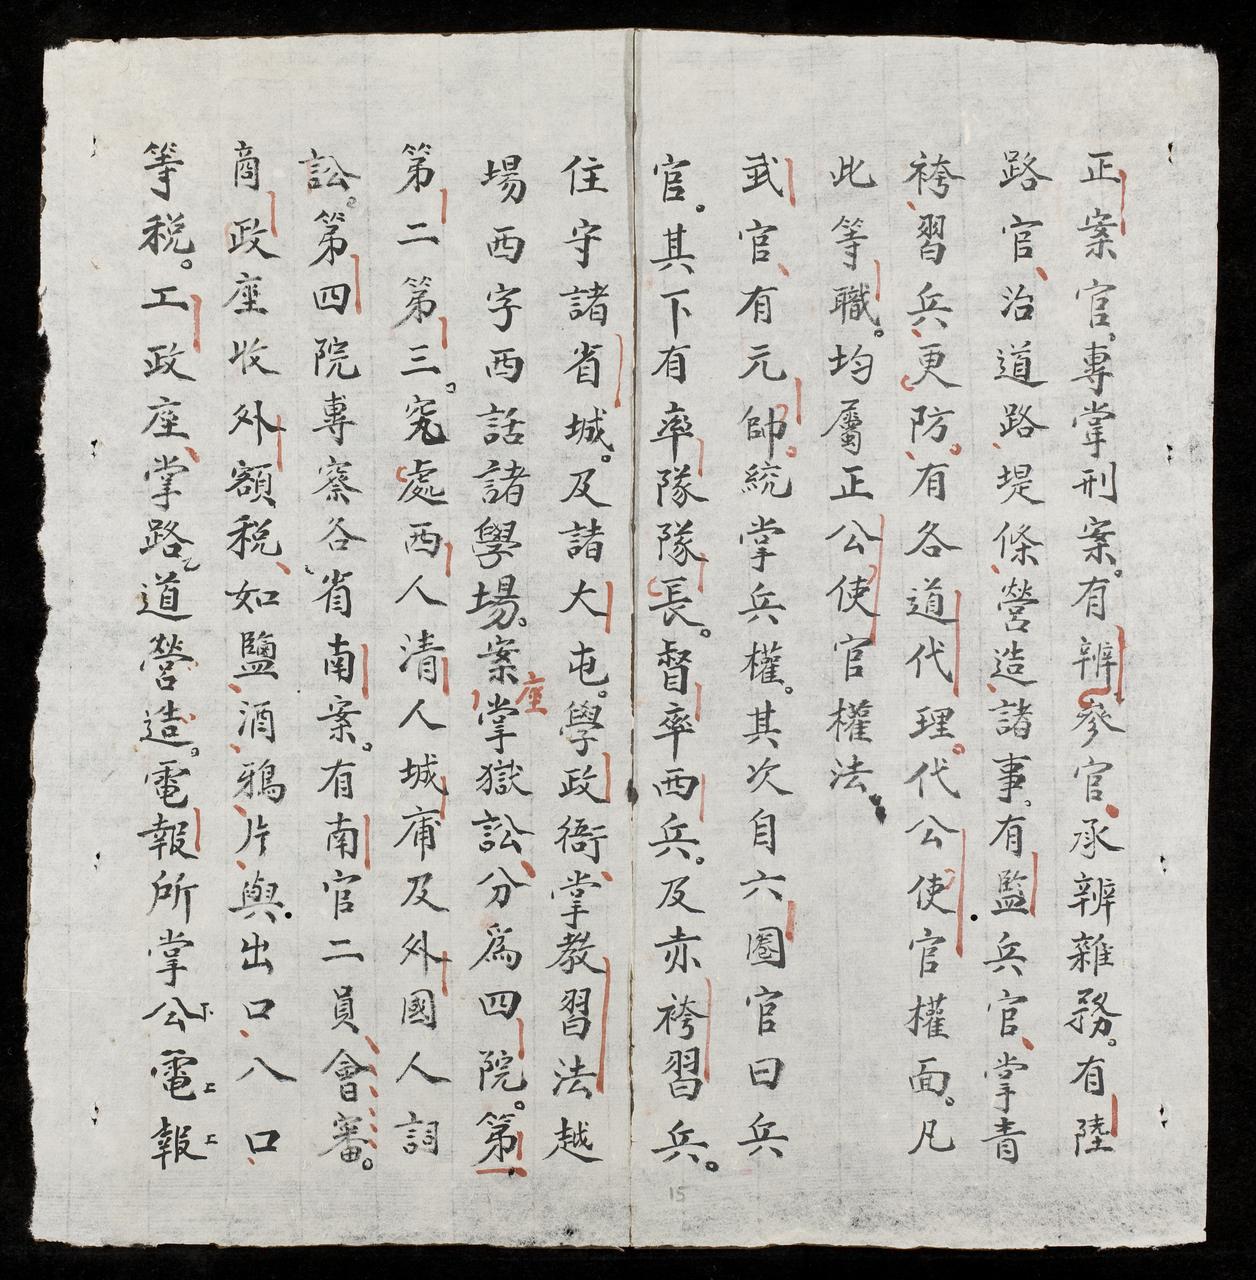 正案官。專掌刑案。有辨參官、承辨雜務。有陸
路官、治道路、堤條、營造諸事。有監兵官、掌青
袴習兵更防。有各道代理。代公使官權面。凡
此等職。均屬正公使官權法
武官、有元帥。統掌兵權。其次自六圈官曰兵
官。其下有率隊隊長。督率西兵。及赤袴習兵。
住守諸省城。及諸大屯。學政衙、掌教習法越
場西字西話諸學場。案座掌獄訟、分為四院。第一
第二第三。究處西人清人城庯及外國人詞
訟。第四院專察各省南案。有南官二員會審。
商政座收外額稅、如鹽酒鴉片與出口入口
等稅。工政座、掌路道營造。電報所掌公電報
15